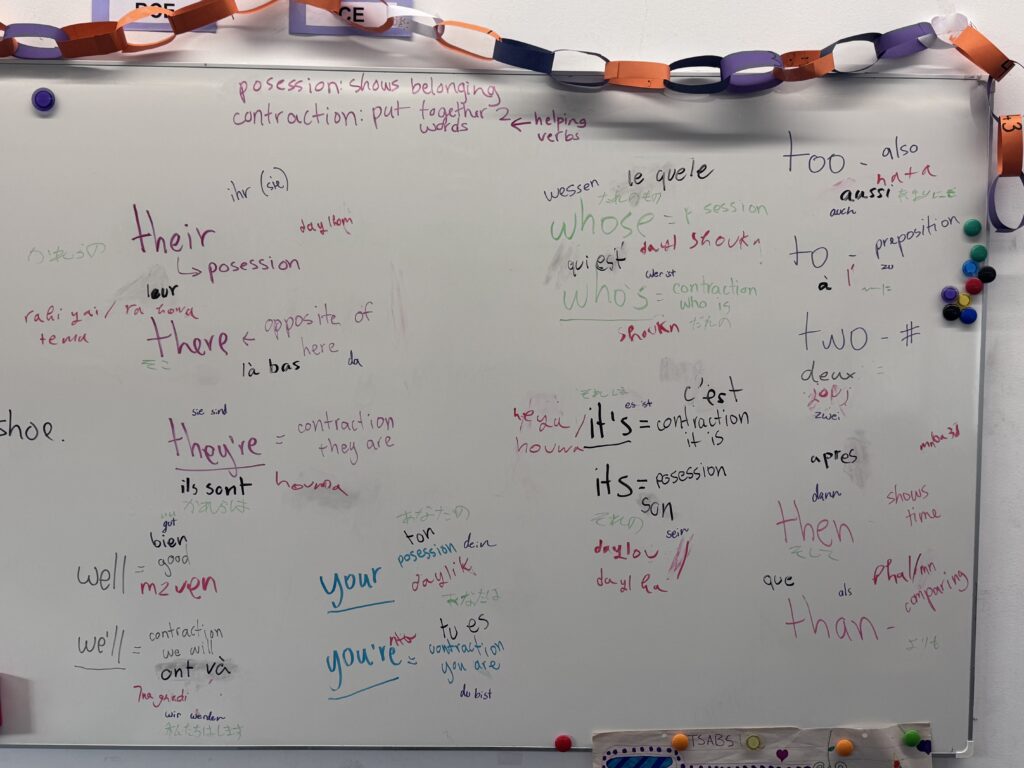 CE
posession: shows belonging
contraction: put together 2 words ← helping verbs
ihr (sie)
their
daylhom
かれらの
posession
leur
rahi yai / ra howa
tema
there ← opposite of here
そこ
là bas
da
shoe.
sie sind
they're = contraction they are
ils sont
houma
かれらは
gut
bien
well = good
mzven
we'll = contraction we will
ont và
7na ghadi
wir werden
私たちはします
あなたの
ton
your
posession
dein
daylik
あなたは
tu es
you're = contraction you are
du bist
wessen
le quele
だれのもの
whose =
session
qui est
dayl shoukn
wer ist
who's = contraction who is
shoukn
だれの
それは
c'est
heya / houwa
es ist
it's = contraction it is
its = posession
son
それの
sein
daylou
dayl ha
too - also
hata
aussi
auch
to - preposition
à
l'
zu
two - #
deux
=
zwei
apres
mnba3d
dann
then - shows time
そして
que
als
than - comparing
よりも
TSABS